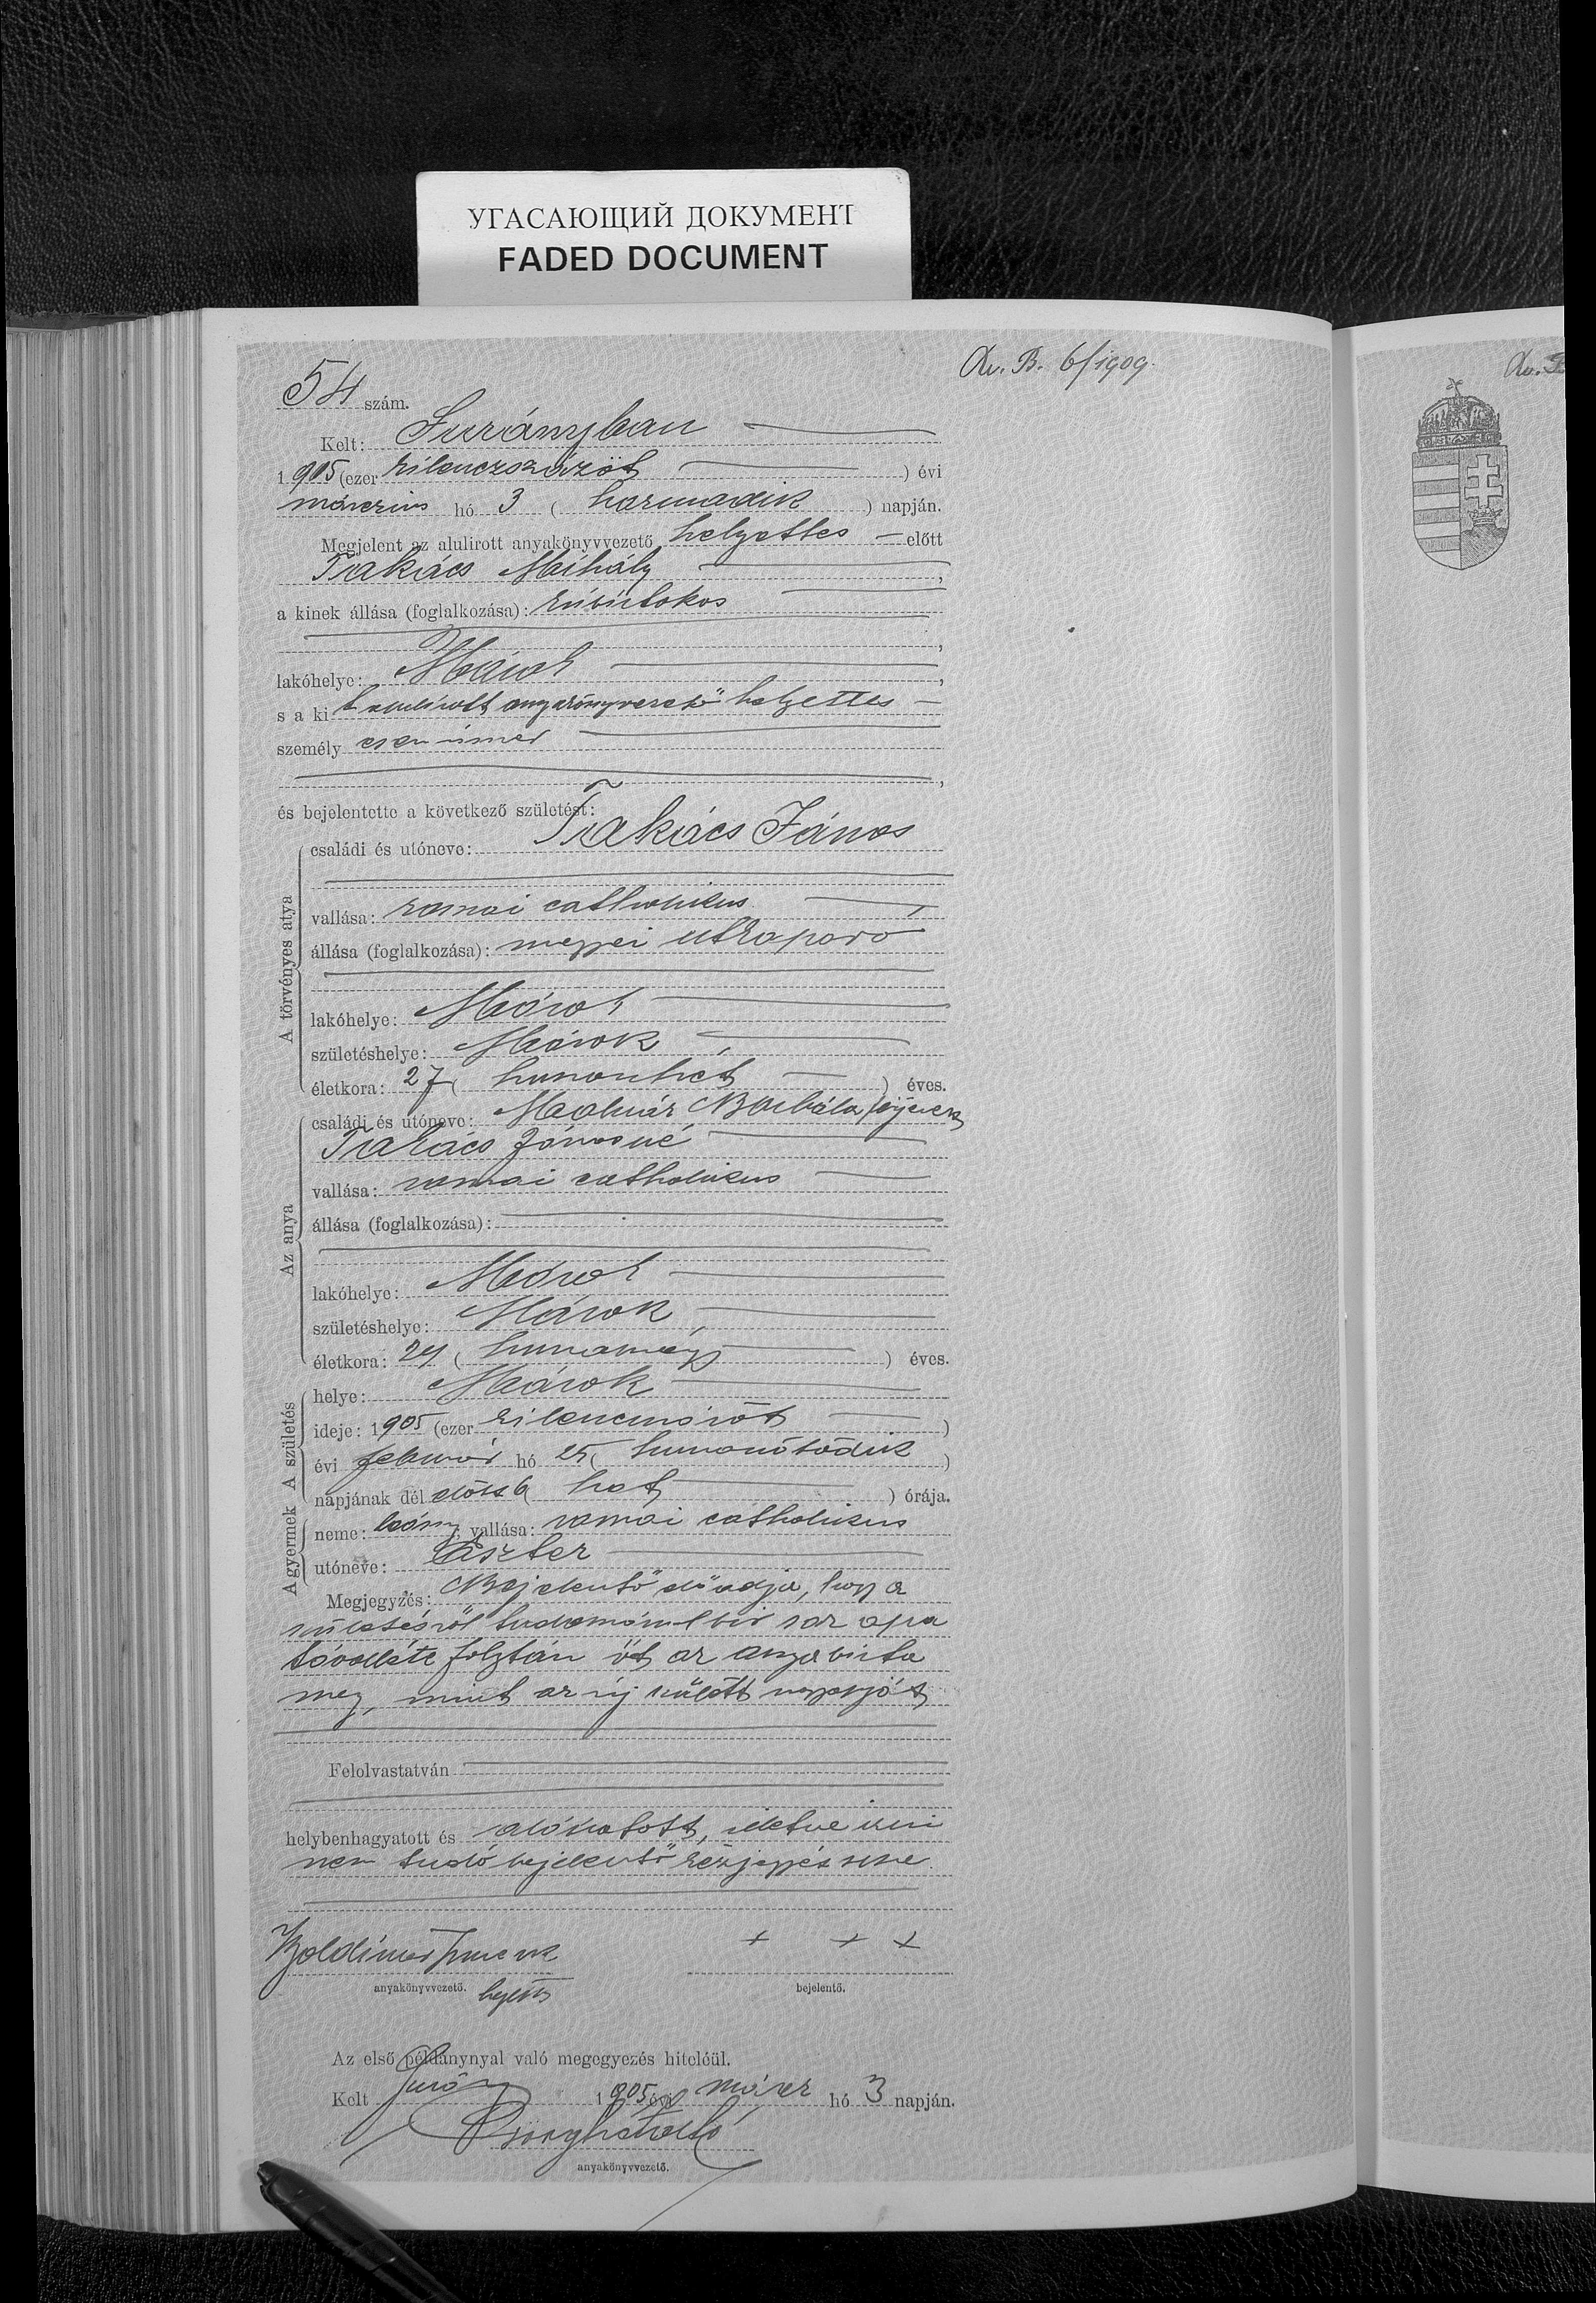 УГАСАЮЩИЙ ДОКУМЕНТ
FADED DOCUMENT
6/1909.
54 szám.
Kelt: Surányban
1905 (ezer kilenczszázöt) évi
márczius hó 3 (harmadik) napján.
Megjelent az alulirott anyakönyvvezető helyettes előtt
Takács Mihály,
a kinek állása (foglalkozása):
lakóhelye: Márok,
s a ki t alulírott anyakönyvvezető helyettes
személy esen ismer,
és bejelentette a következő születést:
A törvényes atya
családi és utóneve: Takács János
vallása: romai catholikus
állása (foglalkozása): megyei utkaparó
lakóhelye: Márok
születéshelye: Márok
életkora: 27 (huszonhét) éves.
Az anya
családi és utóneve: Molnár Borbála férjezett
Takács Jánosné
vallása: romai catholikus
állása (foglalkozása):
lakóhelye: Márok
születéshelye: Márok
életkora: 24 (huszonnégy) éves.
A születés
helye: Márok
ideje: 1905 (ezer kilenczszázöt)
évi február hó 25 (huszonötödik)
napjának dél előtt 6 (hat) órája.
A gyermek
neme: leány; vallása: romai catholikus
utóneve: Eszter
Megjegyzés: Bejelentő előadja, hogy a
születésről tudomással bir s az apa
távolléte folytán őt az anya bizta
meg, mint az uj szülött nagyapját
Felolvastatván
helybenhagyatott és aláíratott, illetve irni
nem tudó bejelentő kézjegyével
anyakönyvvezető. helyettes
+ + +
bejelentő.
Az első példánynyal való megegyezés hiteléül.
Kelt Surány 1905 évi márcz hó 3 napján.
anyakönyvvezető.